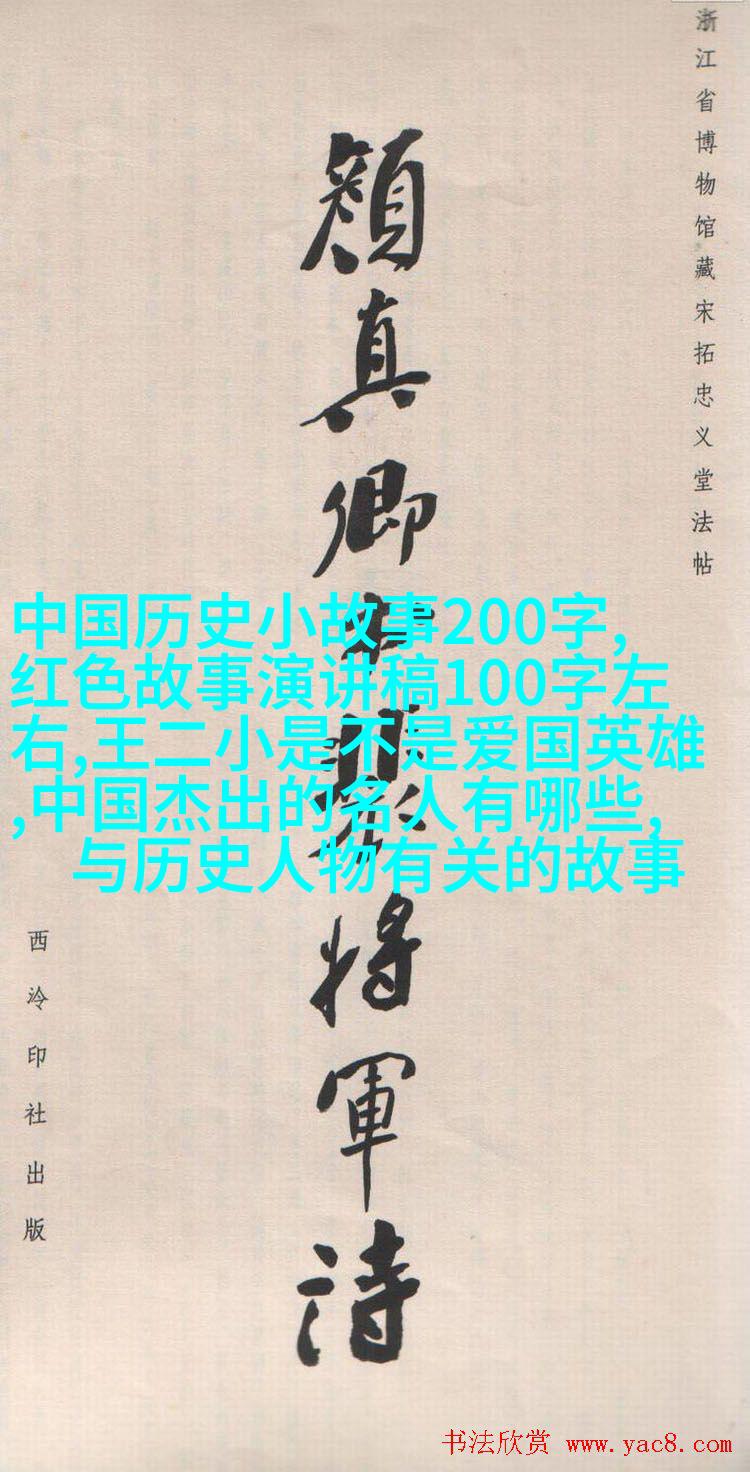 浙江省博物馆藏宋拓忠义堂法帖
顏真卿將軍詩
中国历史小故事200字,
红色故事演讲稿100字左
右,王二小是不是爱国英雄
,中国杰出的名人有哪些,
与历史人物有关的故事
西泠印社出版
书法欣赏 www.yac8.com